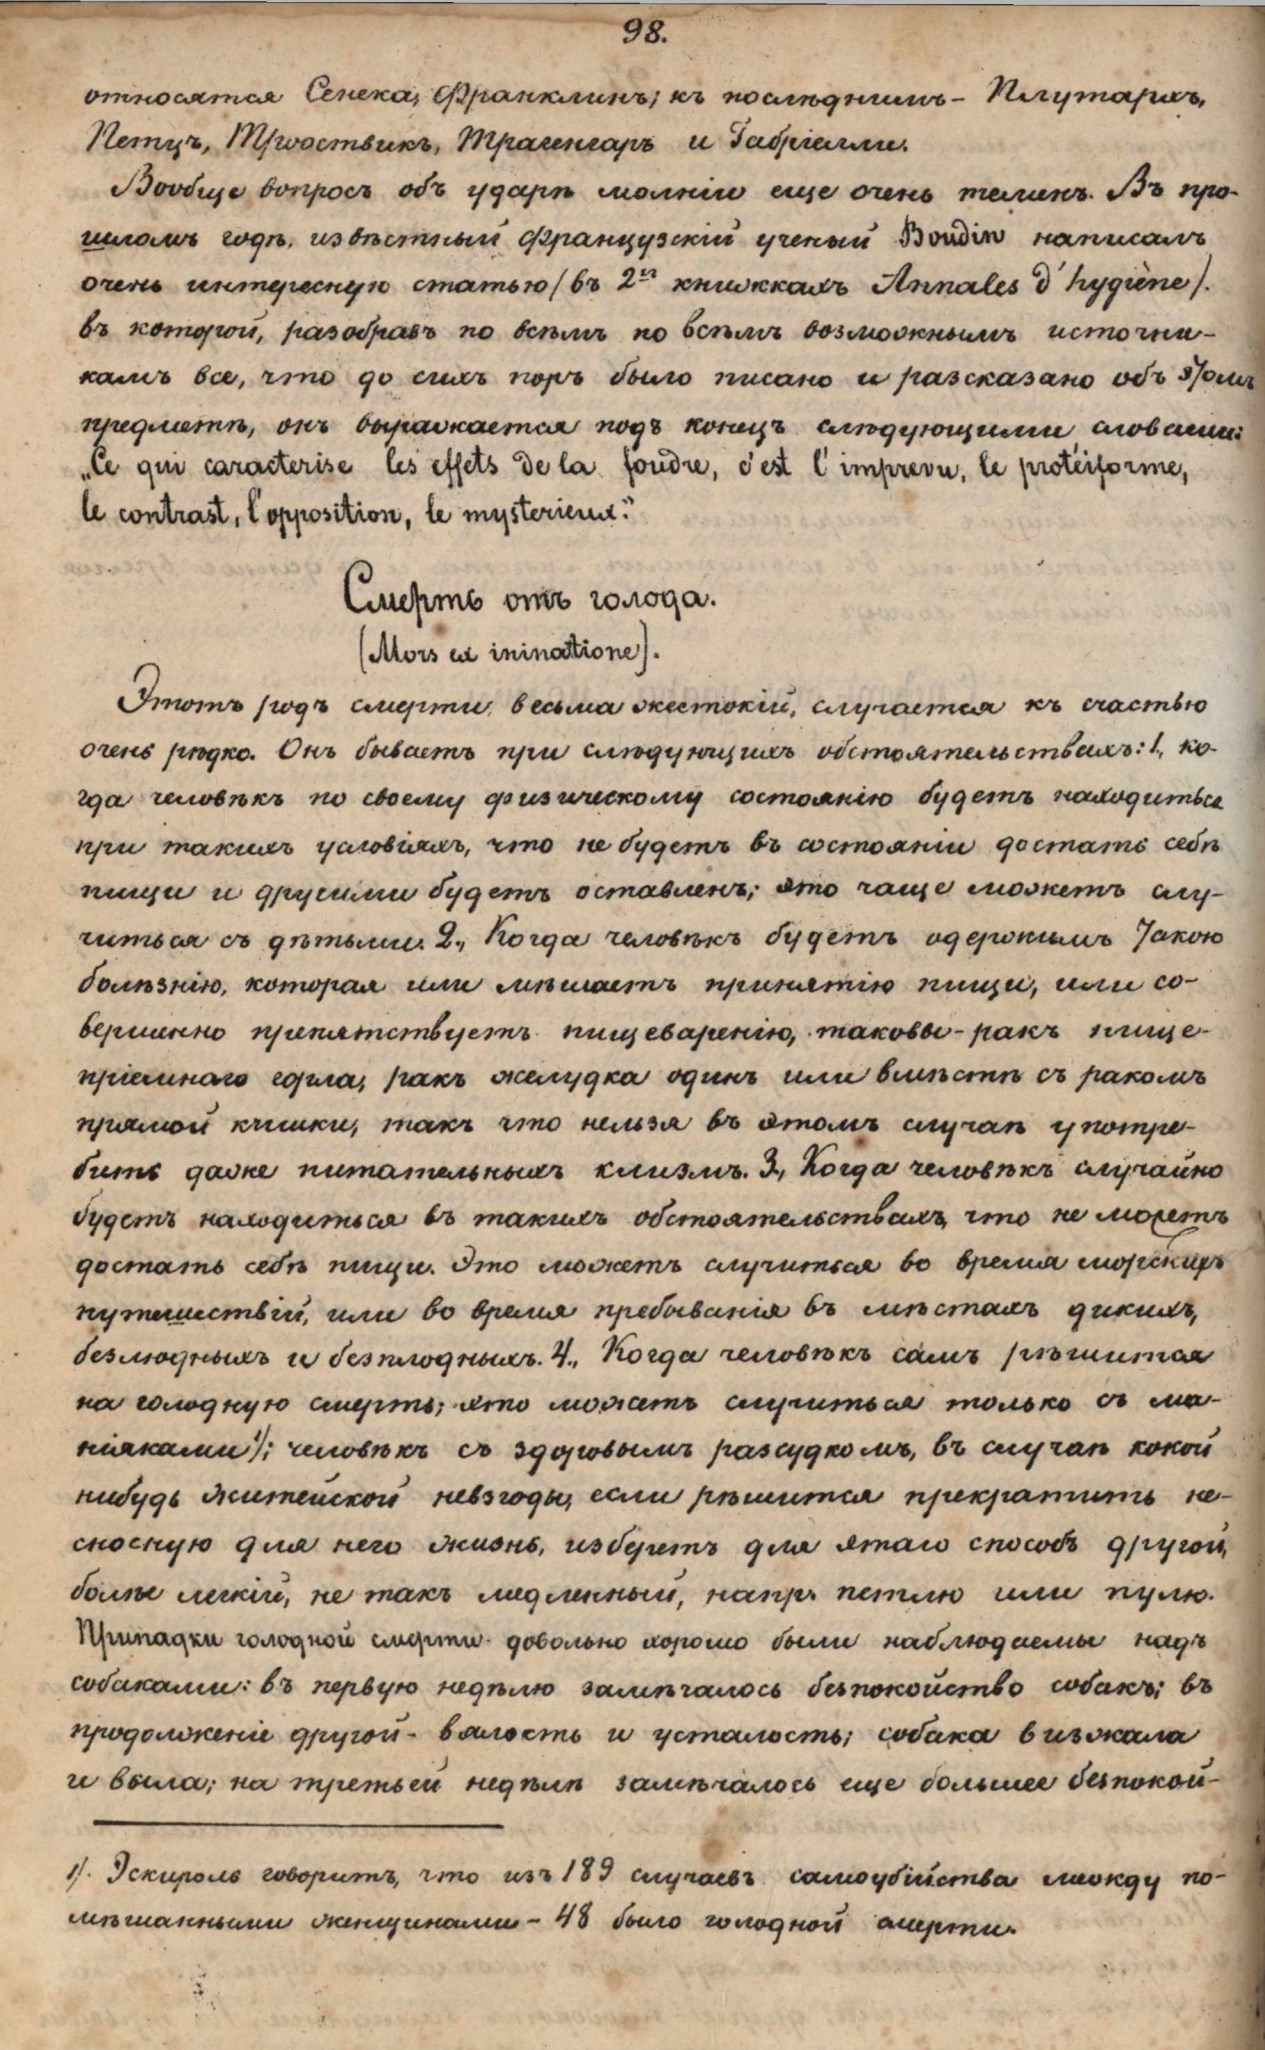 98.
относятся Сенека, Франклинъ; къ послѣднимъ - Плутархъ,
Петцъ, Трооствикъ, Крагенгаръ и Габріелли.
Вообще вопросъ объ ударѣ молніи еще очень теменъ. Въ про-
шломъ годѣ, извѣстный французскій ученый Boudin написалъ
очень интересную статью (въ 2хъ книжкахъ Annales d'hygiène).
въ которой, разобравъ по всѣмъ по всѣмъ возможнымъ источни-
камъ все, что до сихъ поръ было писано и разсказано объ этомъ
предметѣ, онъ выражается подъ конецъ слѣдующими словами:
„Ce qui caracterise les effets de la foudre, c'est l'imprevu, le protéiforme,
le contrast, l'opposition, le mysterieux."
Смерть отъ голода.
(Mors ex ininatione).
Этотъ родъ смерти, весьма жестокій, случается къ счастью
очень рѣдко. Онъ бываетъ при слѣдующихъ обстоятельствахъ: 1, ко-
гда человѣкъ по своему физическому состоянію будетъ находиться
при такихъ условіяхъ, что не будетъ въ состояніи достать себѣ
пищи и другими будетъ оставленъ; это чаще можетъ слу-
читься съ дѣтьми. 2., Когда человѣкъ будетъ одержимъ такою
болѣзнію, которая или мѣшаетъ принятію пищи, или со-
вершенно препятствуетъ пищеваренію, таковы - ракъ пище-
пріемнаго горла, ракъ желудка одинъ или вмѣстѣ съ ракомъ
прямой кишки, такъ что нельзя въ этомъ случаѣ употре-
бить даже питательныхъ клизмъ. 3., Когда человѣкъ случайно
будетъ находиться въ такихъ обстоятельствахъ, что не можетъ
достать себѣ пищи. Это можетъ случиться во время морскихъ
путешествій, или во время пребыванія въ мѣстахъ дикихъ,
безлюдныхъ и безплодныхъ. 4., Когда человѣкъ самъ рѣшится
на голодную смерть; это можетъ случиться только съ ма-
ніяками 1); человѣкъ съ здоровымъ разсудкомъ, въ случаѣ кокой
нибудь житейской невзгоды, если рѣшится прекратить не-
сносную для него жизнь, изберетъ для этаго способъ другой,
болѣе легкій, не такъ медленный, напр. петлю или пулю.
Припадки голодной смерти довольно хорошо были наблюдаемы надъ
собаками: въ первую недѣлю замѣчалось безпокойство собакъ; въ
продолженіе другой - вялость и усталость; собака визжала
и выла; на третьей недѣлѣ замѣчалось еще большее безпокой-
1). Эскироль говоритъ, что изъ 189 случаевъ самоубійства между по-
мѣшанными женщинами - 48 было голодной смерти.